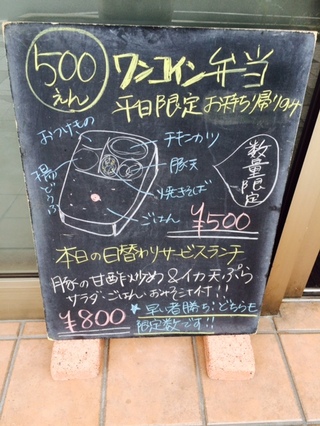 500
えん
ワンコイン弁当
平日限定お持ち帰りのみ
おつけもの
チキンカツ
豚天
揚どうふ
焼きそば
ごはん
数量限定
¥500
本日の日替わりサービスランチ
豚の甘酢炒め&イカ天ぷら
サラダ・ごはん・おみそ汁付!!
¥800
*早い者勝ち!どちらも
限定数です!!